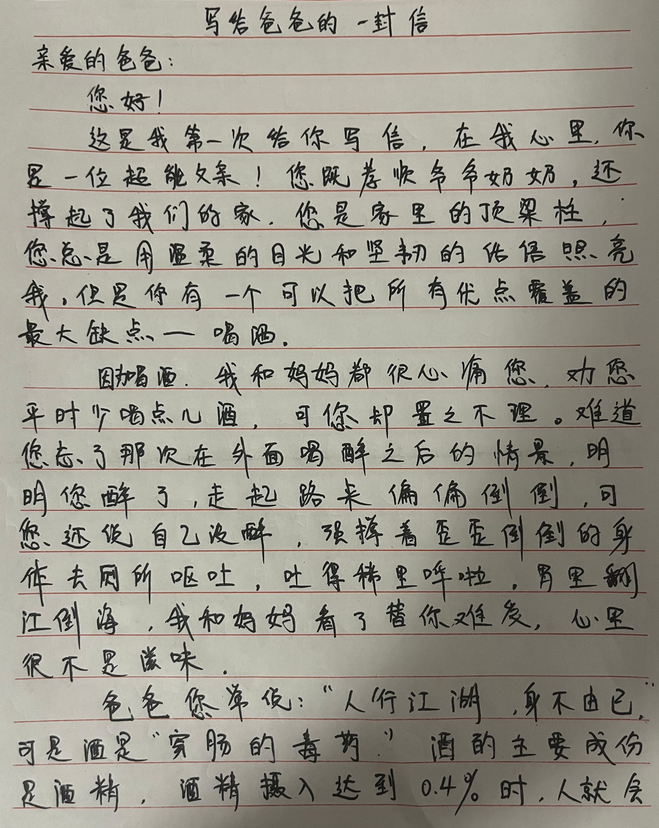 写给爸爸的一封信
亲爱的爸爸：
您好！
这是我第一次给你写信，在我心里，你
是一位超能父亲！您既孝顺爷爷奶奶，还
撑起了我们的家，您是家里的顶梁柱，
您总是用温柔的目光和坚韧的话语照亮
我，但是你有一个可以把所有优点覆盖的
最大缺点一喝酒。
因为喝酒，我和妈妈都很心痛您，劝您
平时少喝点儿酒，可您却置之不理。难道
您忘了那次在外面喝醉之后的情景，明
明您醉了，走起路来偏偏倒倒，可
您还说自己没醉，强撑着歪歪倒倒的身
体去厕所呕吐，吐得稀里哗啦，胃里翻
江倒海，我和妈妈看了替你难受，心里
很不是滋味。
爸爸您常说：“人行江湖，身不由已，”
可是酒是“穿肠的毒药！”酒的主要成份
是酒精，酒精摄入达到0.4%时，人就会